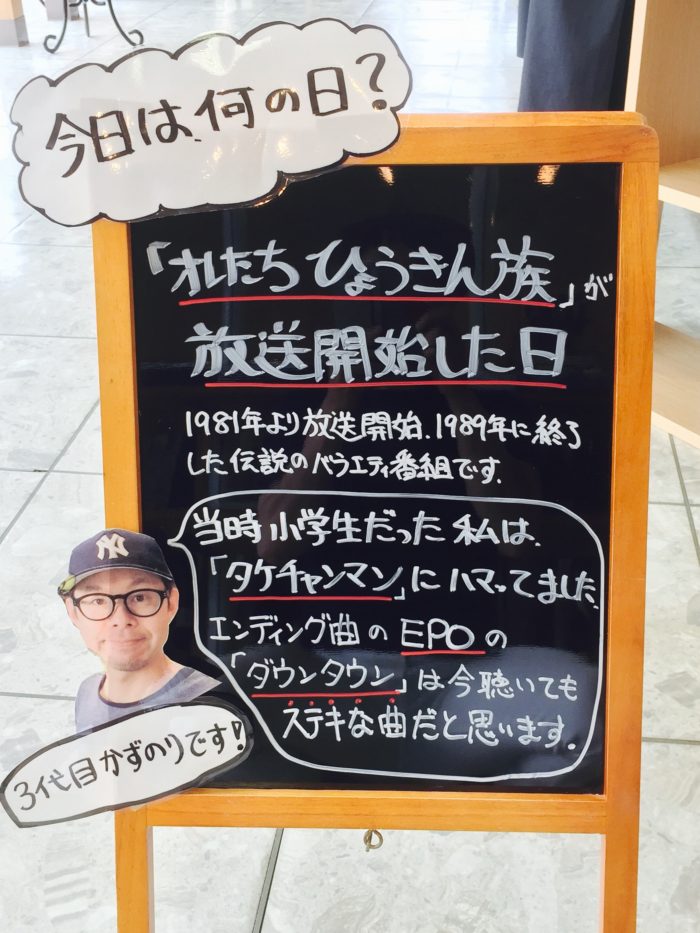 今日は、何の日?
「オレたちひょうきん族」が
放送開始した日
1981年より放送開始、1989年に終了
した伝説のバラエティ番組です。
当時小学生だった私は、
「タケチャンマン」にハマってました。
エンディング曲のEPOの
「ダウンタウン」は今聴いても
ステキな曲だと思います。
NY
3代目かずのりです!